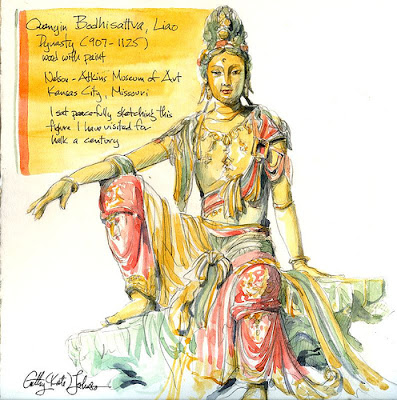 Quanyin Bodhisattva, Liao
Dynasty (907-1125)
wood with paint
Nelson-Atkins Museum of Art
Kansas City, Missouri
I sat peacefully sketching this
figure I have visited for
half a century
Cathy (Kate) Johnson